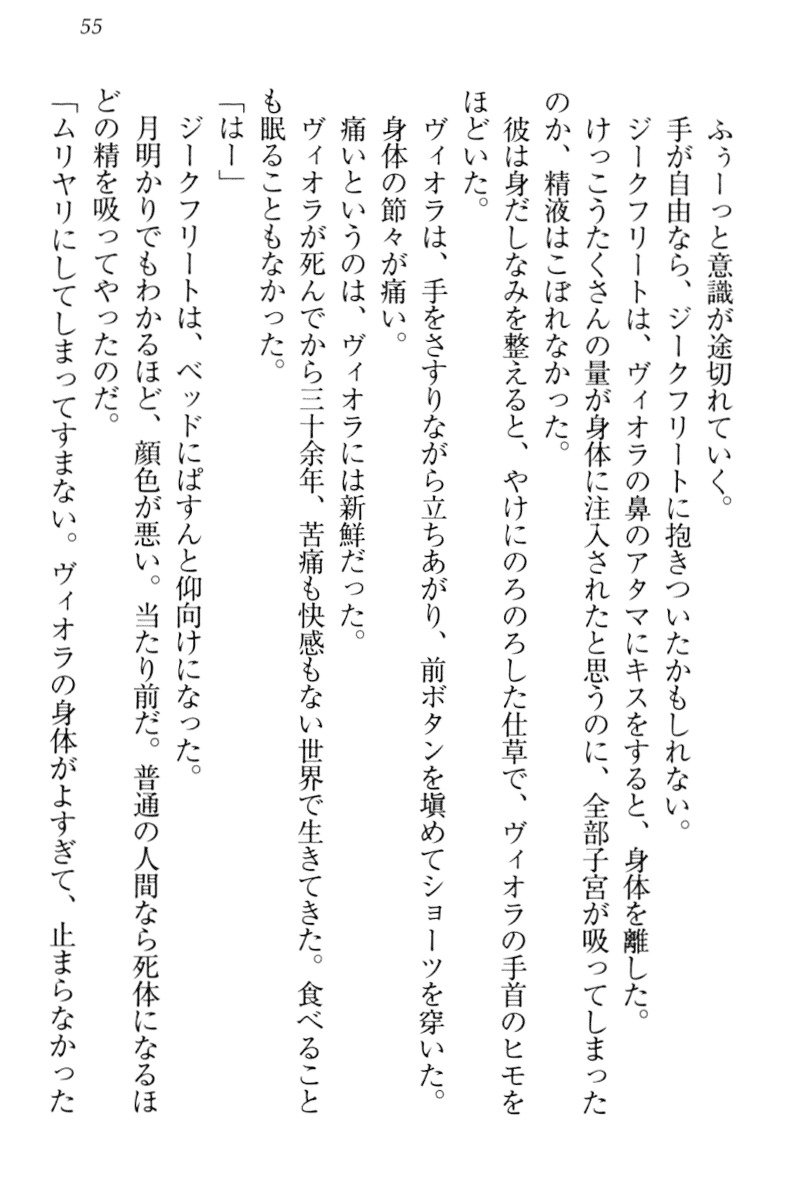 55
ふぅーっと意識が途切れていく。
手が自由なら、ジークフリートに抱きついたかもしれない。
ジークフリートは、ヴィオラの鼻のアタマにキスをすると、身体を離した。
けっこうたくさんの量が身体に注入されたと思うのに、全部子宮が吸ってしまった
のか、精液はこぼれなかった。
彼は身だしなみを整えると、やけにのろのろした仕草で、ヴィオラの手首のヒモを
ほどいた。
ヴィオラは、手をさすりながら立ちあがり、前ボタンを塡めてショーツを穿いた。
身体の節々が痛い。
痛いというのは、ヴィオラには新鮮だった。
ヴィオラが死んでから三十余年、苦痛も快感もない世界で生きてきた。食べること
も眠ることもなかった。
「はー」
ジークフリートは、ベッドにぱすんと仰向けになった。
月明かりでもわかるほど、顔色が悪い。当たり前だ。普通の人間なら死体になるほ
どの精を吸ってやったのだ。
「ムリヤリにしてしまってすまない。ヴィオラの身体がよすぎて、止まらなかった